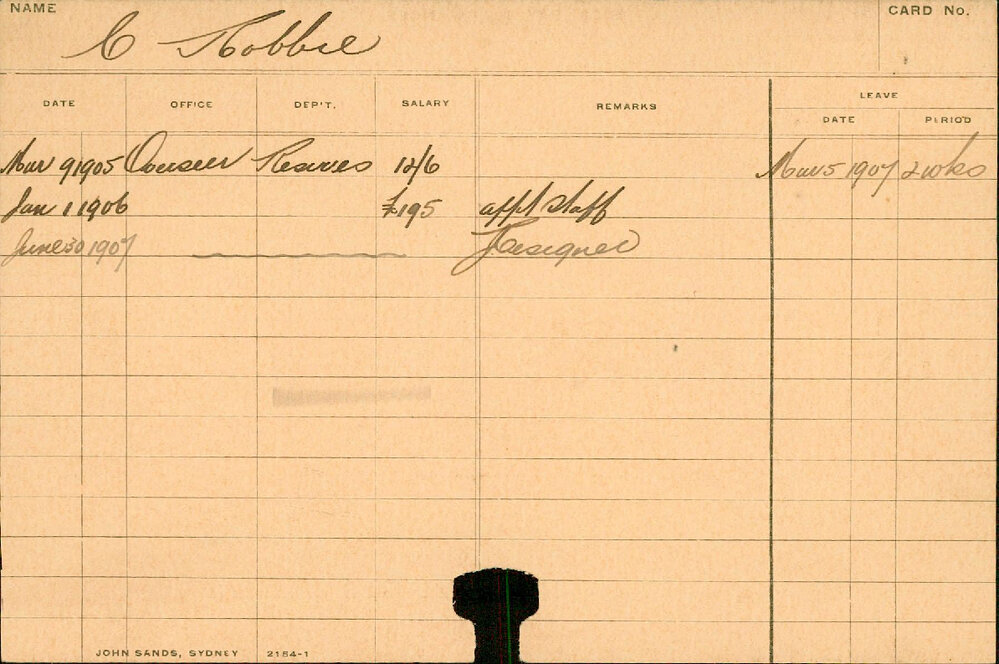 NAME
CARD No.
C Hobbie
DATE OFFICE DEP'T. SALARY REMARKS LEAVE
DATE PERIOD
Mar 9 1905 Overseer Reserves 12/6 Mar 5 1907 2 wks
Jan 1 1906 £195 appt staff
June 30 1907 Resigned
JOHN SANDS, SYDNEY 2184-1